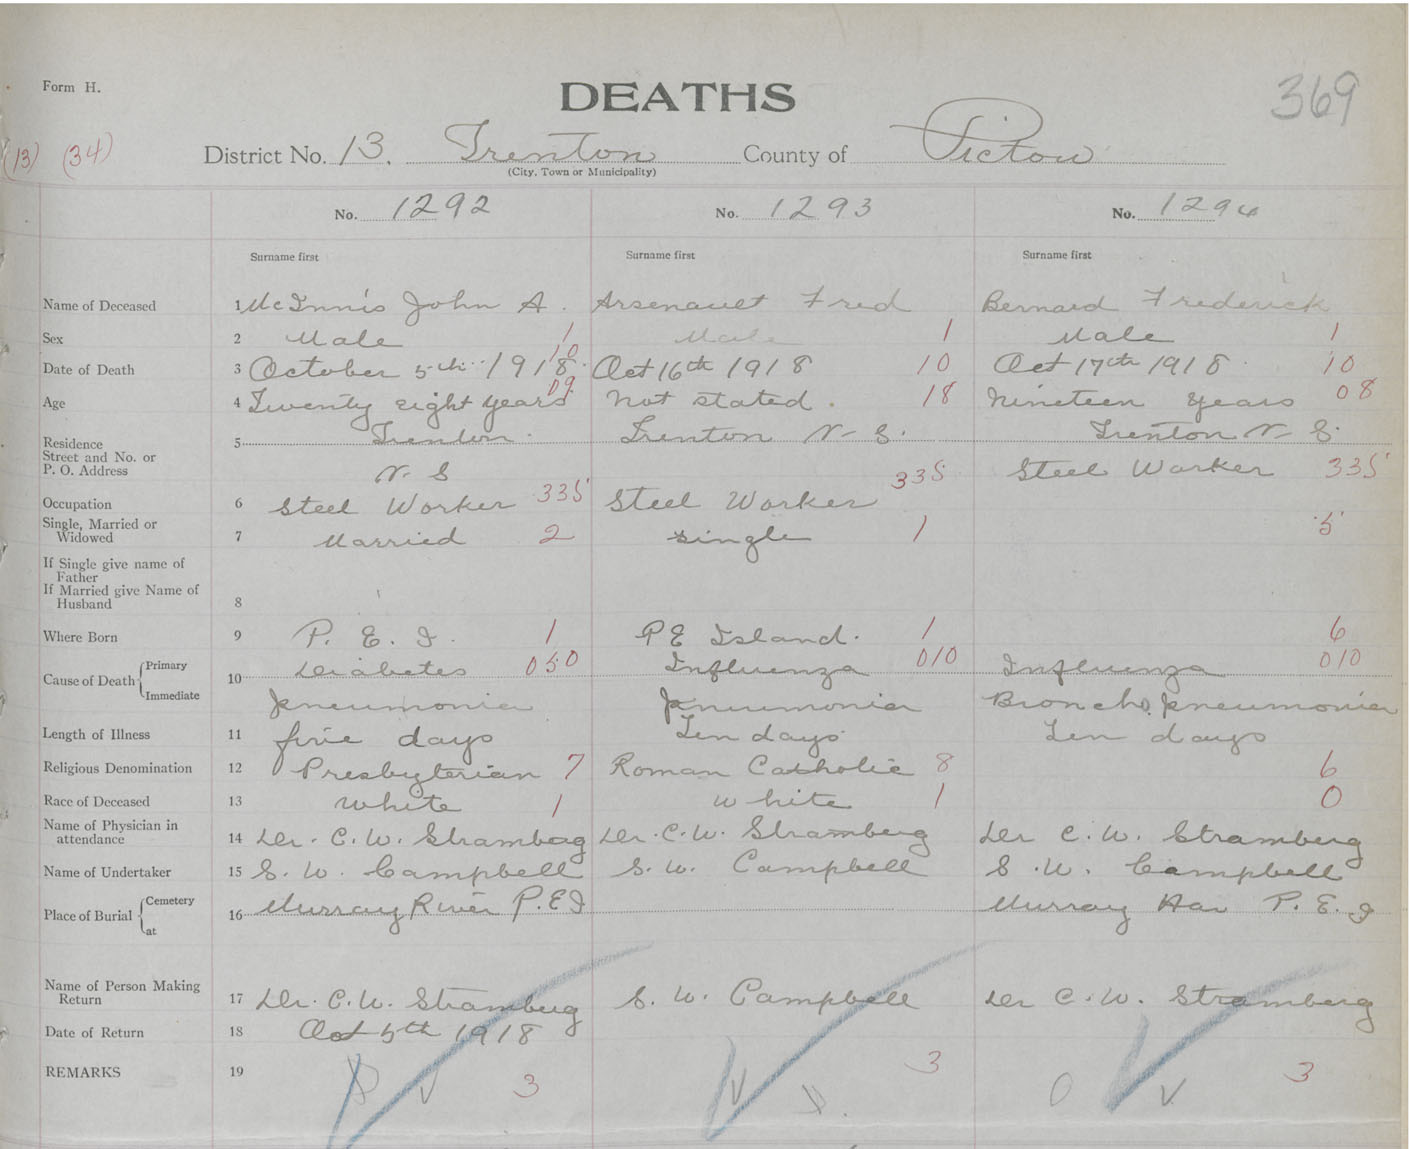 Form H.
DEATHS
369
(13) (34)
District No. 13. Trenton County of Pictou
(City, Town or Municipality)
No. 1292 No. 1293 No. 1294
Surname first Surname first Surname first
Name of Deceased 1 McInnis John A. Arsenault Fred Bernard Frederick
Sex 2 Male 1 Male 1 Male 1
Date of Death 3 October 5th 1918 10 Oct 16th 1918 10 Oct 17th 1918 10
Age 4 Twenty eight years 09 Not stated. 18 Nineteen years 08
Residence 5 Trenton Trenton N-S. Trenton N-S.
Street and No. or
P. O. Address N-S Steel Worker 335
Occupation 6 Steel Worker 335 Steel Worker 335
Single, Married or
Widowed 7 Married 2 single 1 5
If Single give name of
Father
If Married give Name of
Husband 8
Where Born 9 P. E. I. 1 PE Island. 1 6
Cause of Death Primary 10 Diabetes 050 Influenza 010 Influenza 010
Immediate pneumonia pneumonia Broncho pneumonia
Length of Illness 11 five days Ten days Ten days
Religious Denomination 12 Presbyterian 7 Roman Catholic 8 6
Race of Deceased 13 White 1 White 1 0
Name of Physician in
attendance 14 Dr. C. W. Stramberg Dr. C. W. Stramberg Dr C. W. Stramberg
Name of Undertaker 15 S. W. Campbell S. W. Campbell S. W. Campbell
Place of Burial Cemetery 16 Murray River P.E.I Murray Har P. E. I
at
Name of Person Making
Return 17 Dr. C. W. Stramberg S. W. Campbell Dr C. W. Stramberg
Date of Return 18 Oct 5th 1918
REMARKS 19 3 3 3